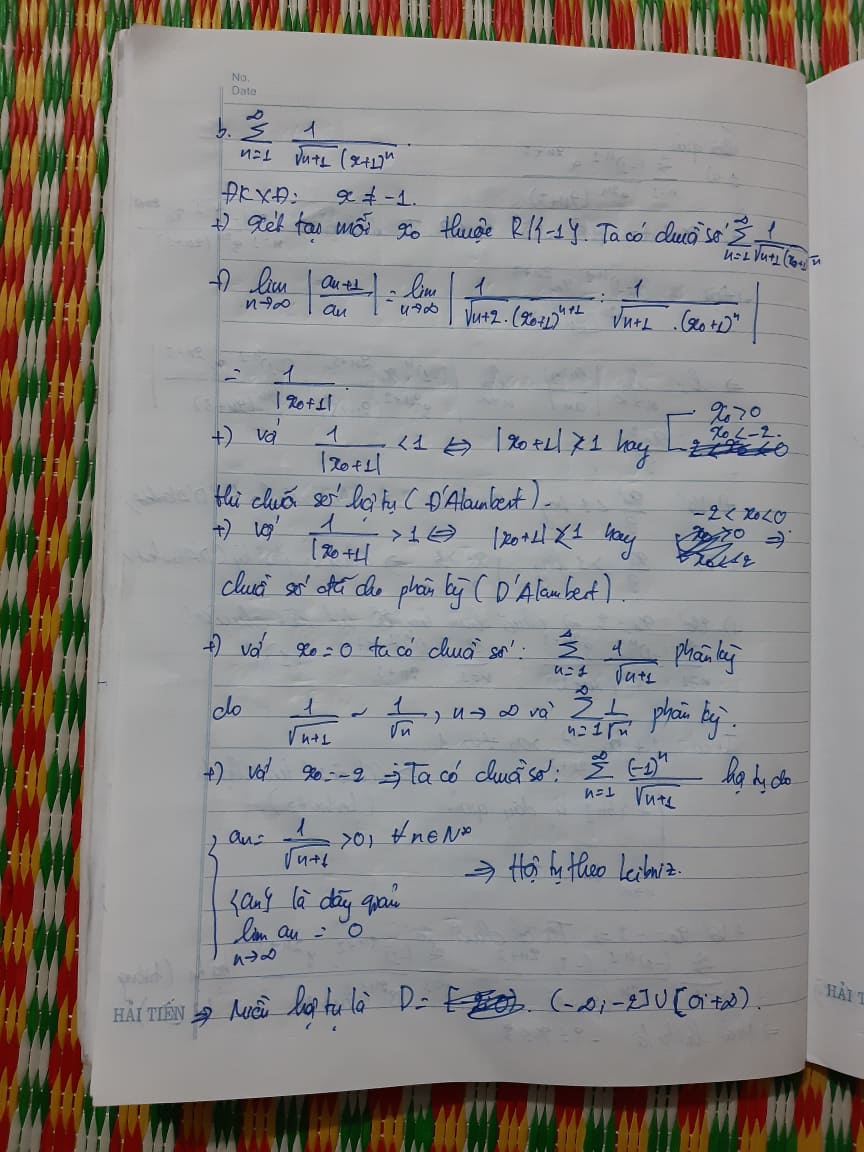 No.
Date
b. ∞∑n=1 1/(√n+1 (x+1)^n).
ĐKXĐ: x ≠ -1.
+) Xét tại mỗi x₀ thuộc R\{-1}. Ta có chuỗi số ∞∑n=1 1/(√n+1 (x₀+1)^n
+) lim n→∞ |an+1/an| = lim n→∞ |1/(√n+2 . (x₀+1)^n+1) : 1/(√n+1 . (x₀+1)^n)|
= 1/|x₀+1|.
+) với 1/|x₀+1| < 1 ⇔ |x₀+1| > 1 hay [ x₀ > 0
x₀ < -2.
thì chuỗi số hội tụ (D'Alambert).
+) với 1/|x₀+1| > 1 ⇔ |x₀+1| < 1 hay -2 < x₀ < 0 ⇒
chuỗi số đã cho phân kỳ (D'Alambert).
+) với x₀ = 0 ta có chuỗi số: ∞∑n=1 1/√n+1 phân kỳ
do 1/√n+1 ~ 1/√n, n→∞ và ∞∑n=1 1/√n phân kỳ.
+) với x₀ = -2 ⇒ Ta có chuỗi số: ∞∑n=1 (-1)^n/√n+1 hội tụ do
{ an = 1/√n+1 > 0, ∀n∈N*
⇒ Hội tụ theo Leibniz.
{an} là dãy giảm
lim n→∞ an = 0
HẢI TIẾN ⇒ Miền hội tụ là D = (-∞; -2] ∪ [0; +∞).
HẢI T